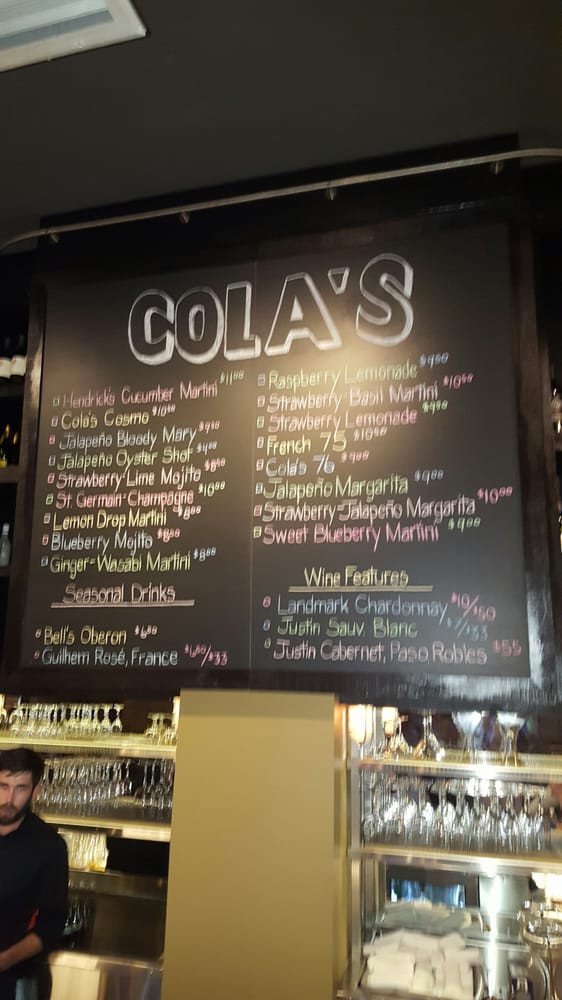 COLA'S
Hendrick's Cucumber Martini $11⁰⁰
Cola's Cosmo $10⁰⁰
Jalapeño Bloody Mary
Jalapeño Oyster Shot
Strawberry-Lime Mojito
St. Germain-Champagne $10⁰⁰
Lemon Drop Martini
Blueberry Mojito
Ginger-Wasabi Martini $8⁰⁰
Seasonal Drinks
Bell's Oberon
Guilhem Rosé, France /$33
Raspberry Lemonade $9⁰⁰
Strawberry Basil Martini $10⁰⁰
Strawberry Lemonade $9⁰⁰
French 75 $10⁰⁰
Cola's 76 $9⁰⁰
Jalapeño Margarita $9⁰⁰
Strawberry-Jalapeño Margarita $10⁰⁰
Sweet Blueberry Martini $9⁰⁰
Wine Features
Landmark Chardonnay
Justin Sauv. Blanc /$33
Justin Cabernet, Paso Robles $55